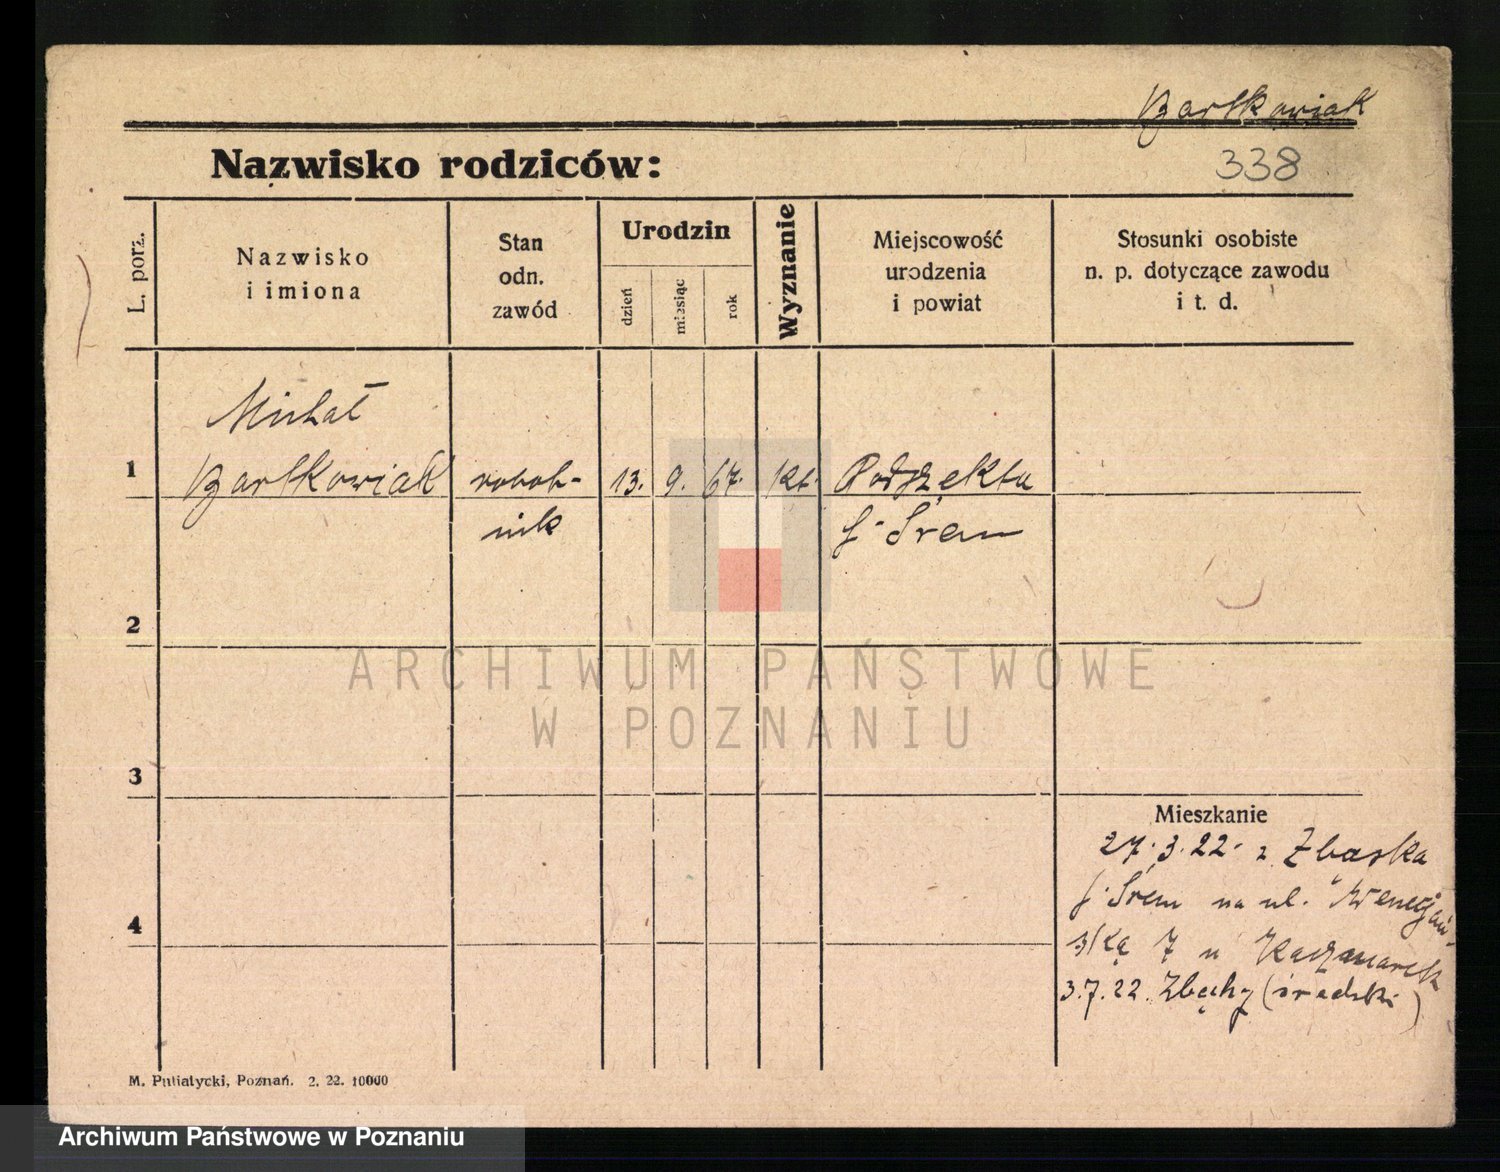 Bartkowiak
Nazwisko rodziców:
338
L. porz.
Nazwisko
i imiona
Stan
odn.
zawód
Urodzin
dzień
miesiąc
rok
Wyznanie
Miejscowość
urodzenia
i powiat
Stosunki osobiste
n. p. dotyczące zawodu
i t. d.
Michał
1
Bartkowiak
robot-
nik
13. 9. 67. kt.
Śrem
2
3
4
Mieszkanie
27.3.22. z
Śrem na ul.
7 u Kaczmarek
3.7.22. Zbęchy (śremski)
ARCHIWUM PAŃSTWOWE
W POZNANIU
M. Putiatycki, Poznań. 2. 22. 10000
Archiwum Państwowe w Poznaniu